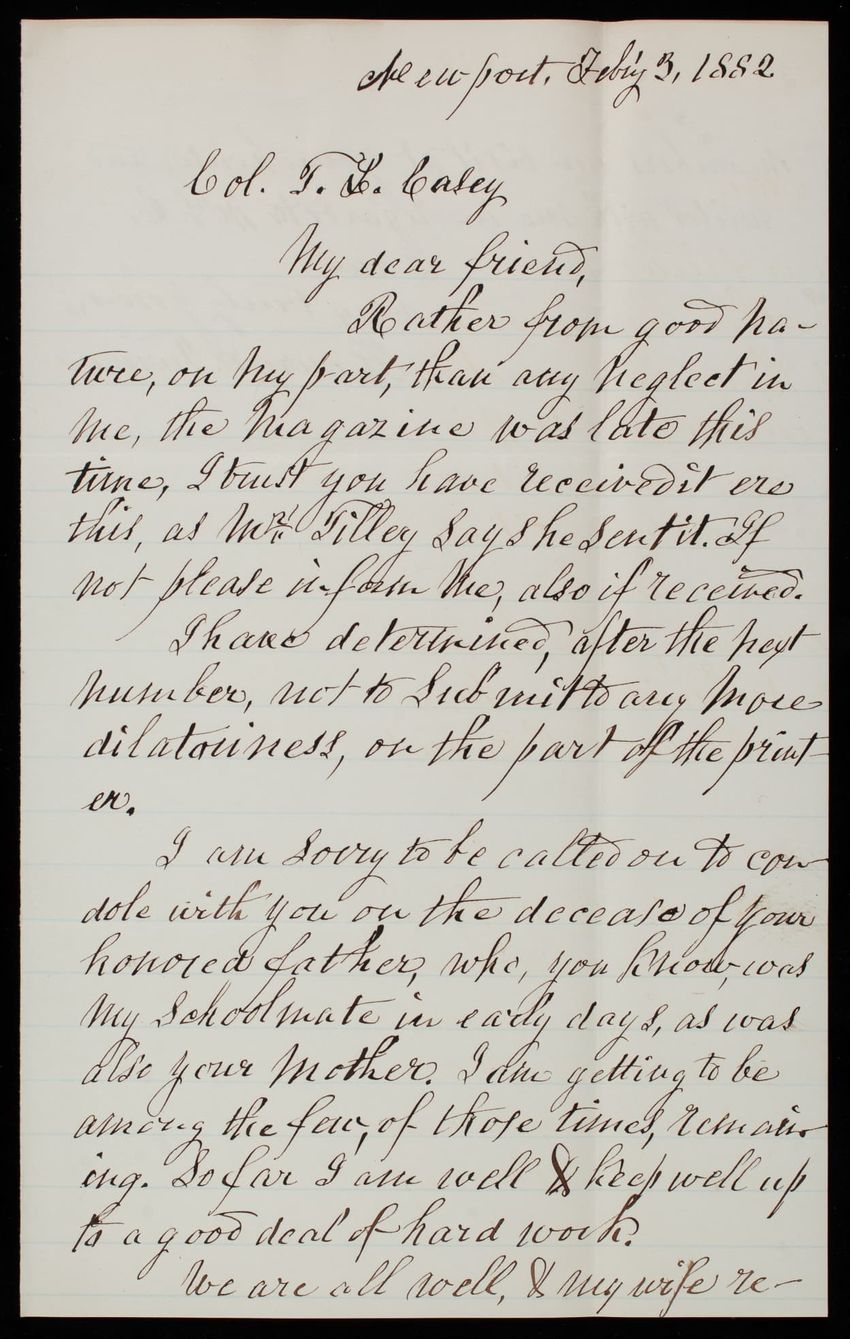 Newport, Feb'y 3, 1882
Col. T. L. Casey
My dear friend,
Rather from good na-
ture, on my part, than any neglect in
me, the magazine was late this
time, I trust you have received it ere
this, as Mr. Tilley says he sent it. If
not please inform me, also if received.
I have determined, after the next
number, not to submit to any more
dilatoriness, on the part of the print-
er.
I am sorry to be called on to con-
dole with you on the decease of your
honored father, who, you know, was
my schoolmate in early days, as was
also your mother. I am getting to be
among the few, of those times, remain-
ing. So far I am well & keep well up
to a good deal of hard work.
We are all well, & my wife re-